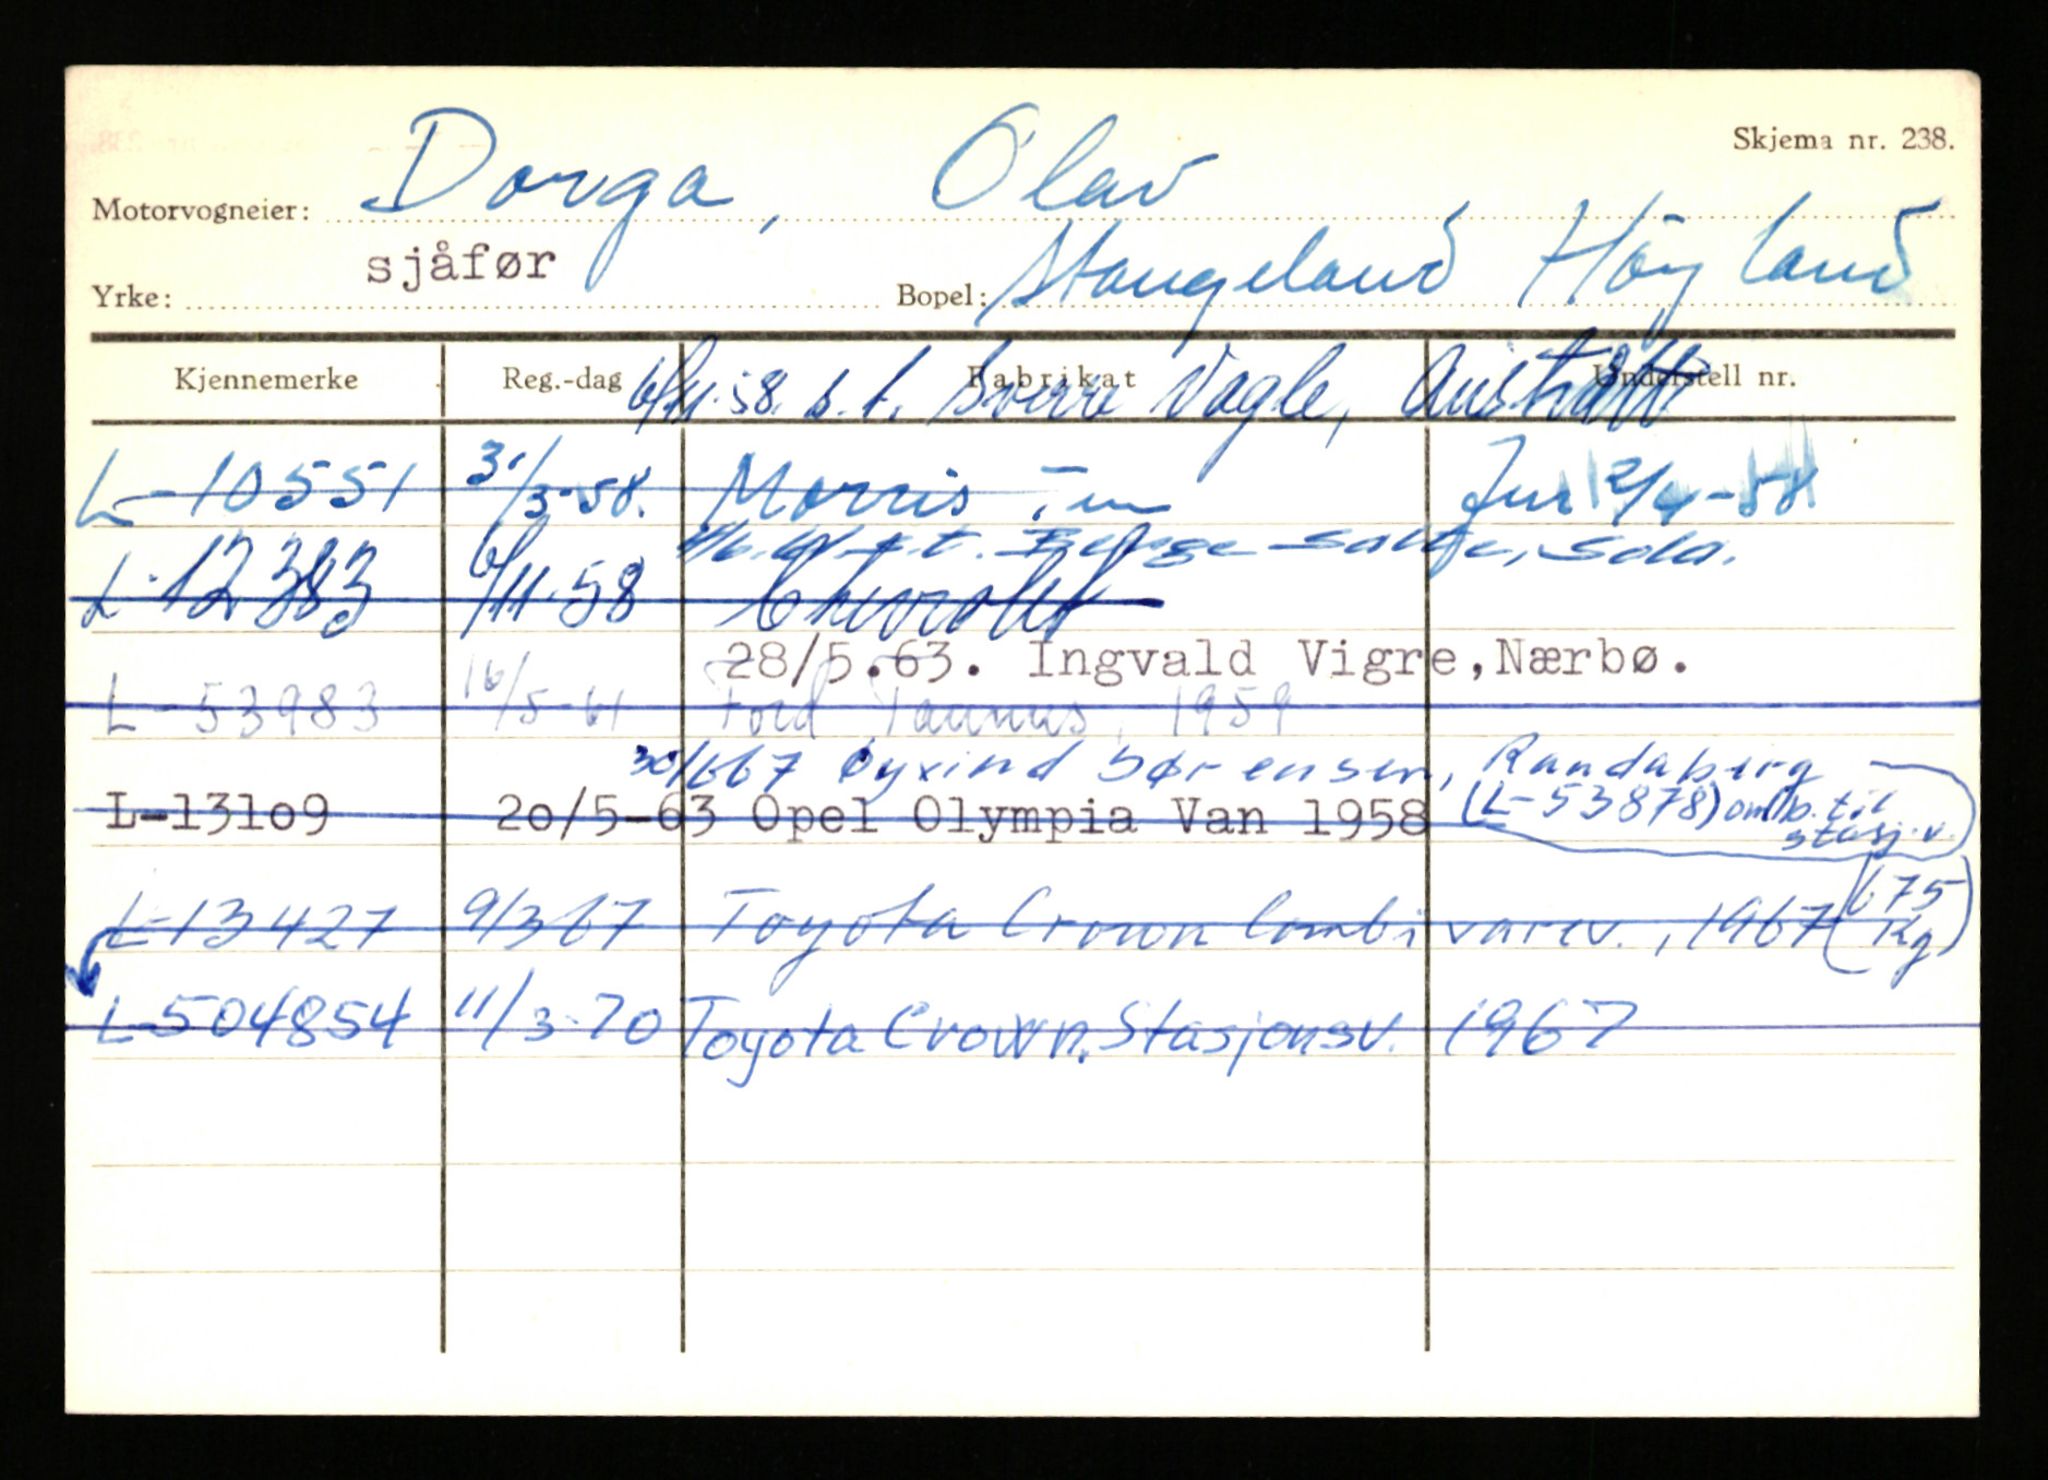 Skjema nr. 238.
Motorvogneier: Dorga, Olav
Yrke: sjåfør Bopel: Stangeland Høyland
Kjennemerke Reg.-dag Fabrikat Understell nr.
6/11.58. s.t. Sverre Vagle, Austrått
L-10551 31/3-58. Morris Jur 12/4-58
s.t. Berge Salte, Sola.
L-12383 6/11-58 Chevrolet
28/5.63. Ingvald Vigre,Nærbø.
L-53983 16/5-61 Ford Taunus, 1959
30/667 Øyvind Sørensen, Randaberg
L-13109 20/5-63 Opel Olympia Van 1958 (L-53878) omb. til stasj.v.
L-13427 9/3 67 Toyota Crown Combi varev., 1967 (675 Kg)
L-504854 11/3-70 Toyota Crown. Stasjonsv. 1967